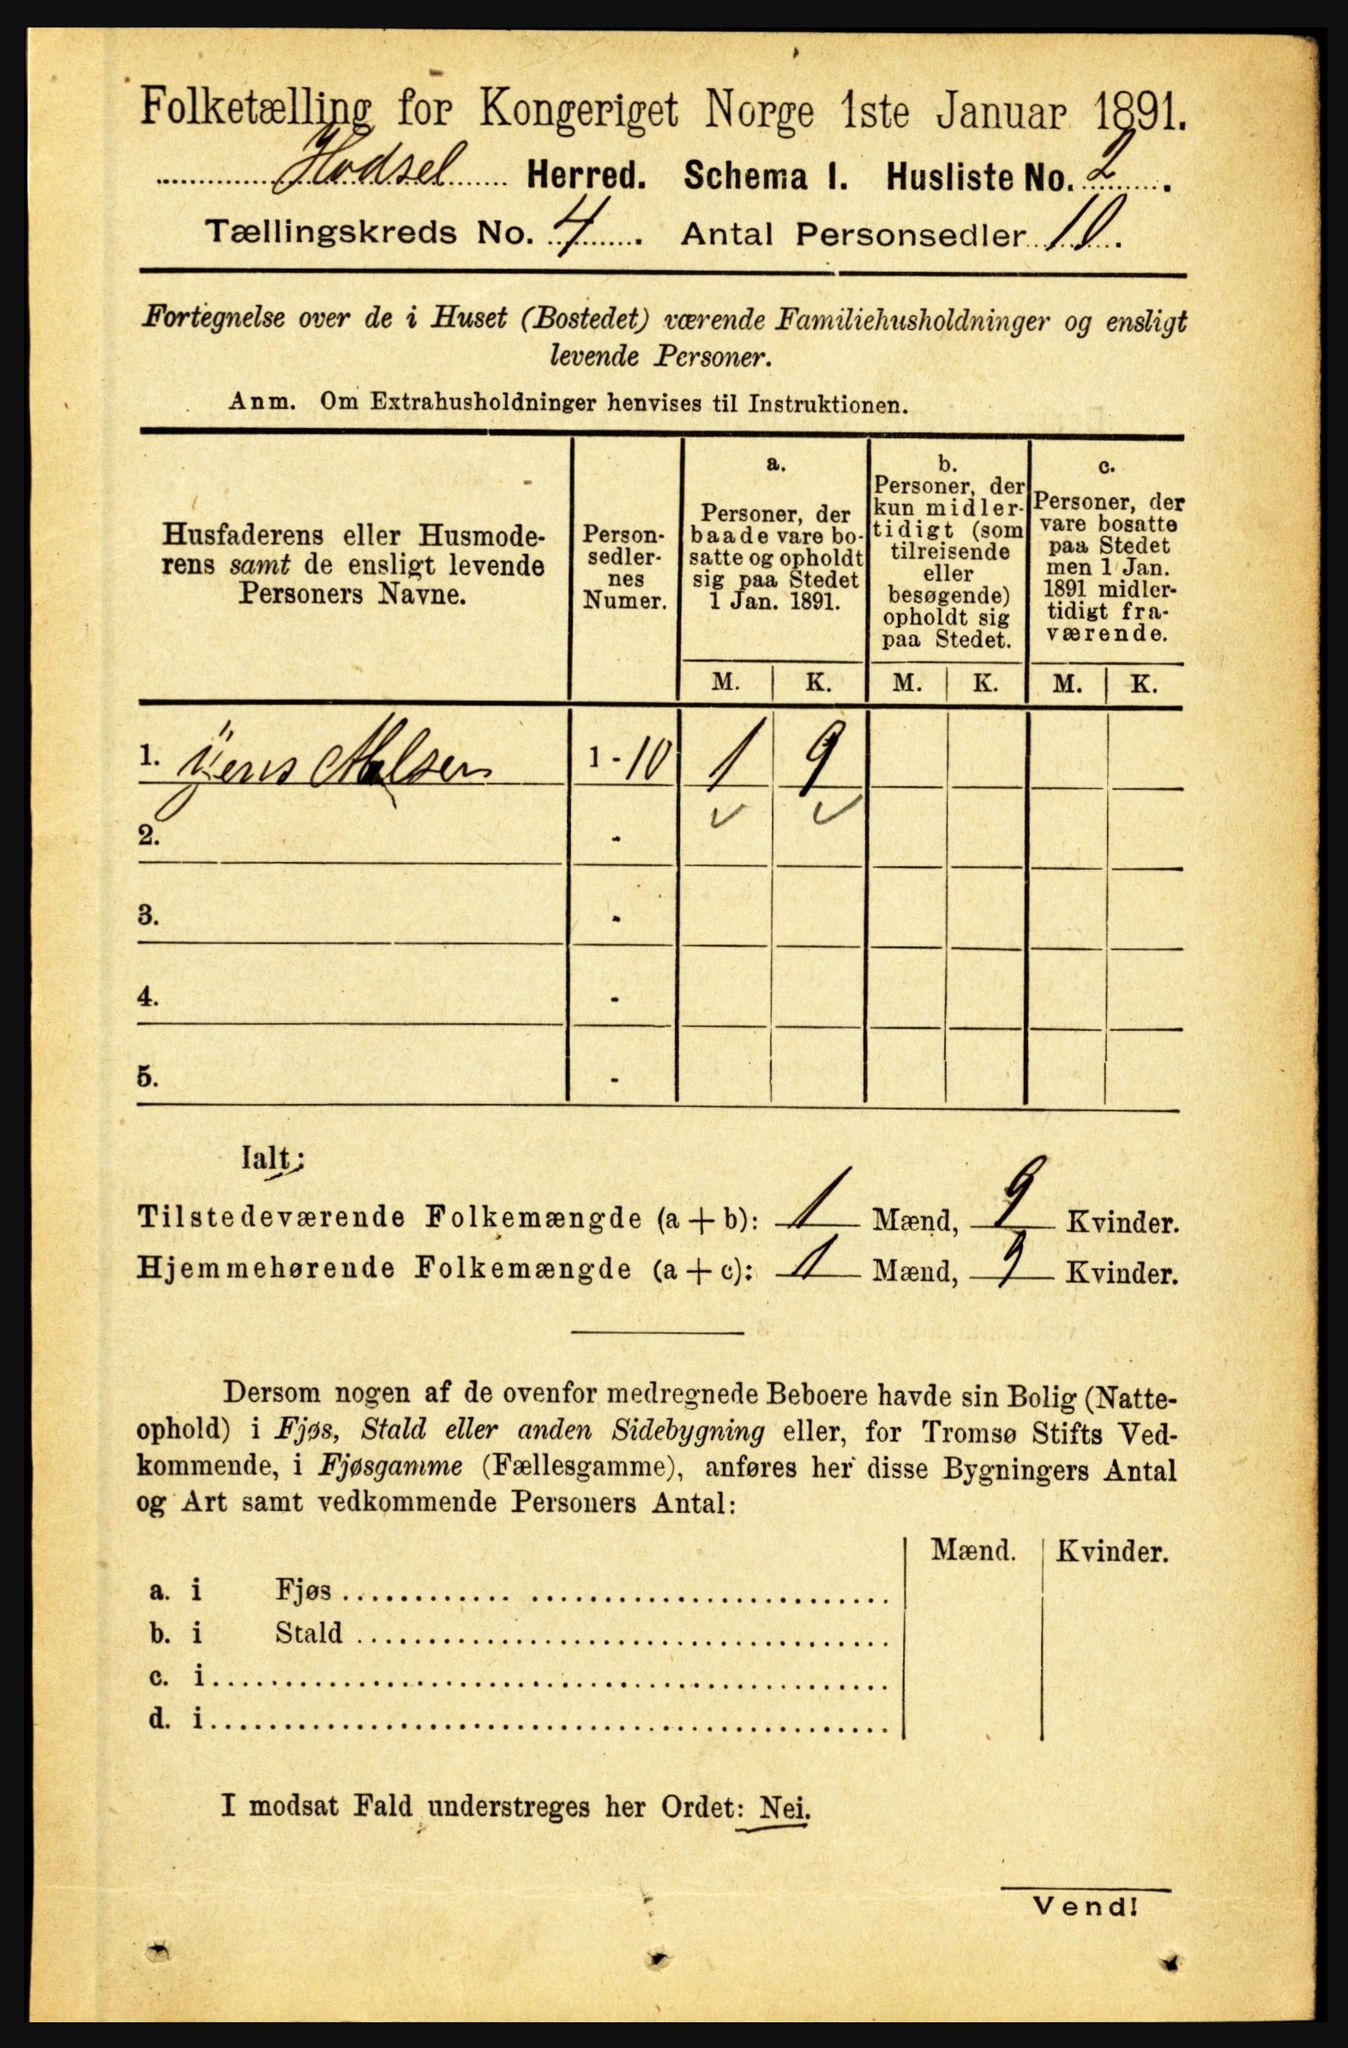 Folketælling for Kongeriget Norge 1ste Januar 1891.
Hodsel Herred. Schema I. Husliste No. 2.
Tællingskreds No. 4. Antal Personsedler 10.
Fortegnelse over de i Huset (Bostedet) værende Familiehusholdninger og ensligt
levende Personer.
Anm. Om Extrahusholdninger henvises til Instruktionen.
Husfaderens eller Husmode-
rens samt de ensligt levende
Personers Navne.
Person-
sedler-
nes
Numer.
a.
Personer, der
baade vare bo-
satte og opholdt
sig paa Stedet
1 Jan. 1891.
b.
Personer, der
kun midler-
tidigt (som
tilreisende
eller
besøgende)
opholdt sig
paa Stedet.
c.
Personer, der
vare bosatte
paa Stedet
men 1 Jan.
1891 midler-
tidigt fra-
værende.
M. K. M. K. M. K.
1. Jens 1 - 10 1 9
2. -
3. -
4. -
5. -
Ialt:
Tilstedeværende Folkemængde (a + b): 1 Mænd, 9 Kvinder.
Hjemmehørende Folkemængde (a + c): 1 Mænd, 9 Kvinder.
Dersom nogen af de ovenfor medregnede Beboere havde sin Bolig (Natte-
ophold) i Fjøs, Stald eller anden Sidebygning eller, for Tromsø Stifts Ved-
kommende, i Fjøsgamme (Fællesgamme), anføres her disse Bygningers Antal
og Art samt vedkommende Personers Antal:
Mænd. Kvinder.
a. i Fjøs
b. i Stald
c. i
d. i
I modsat Fald understreges her Ordet: Nei.
Vend!